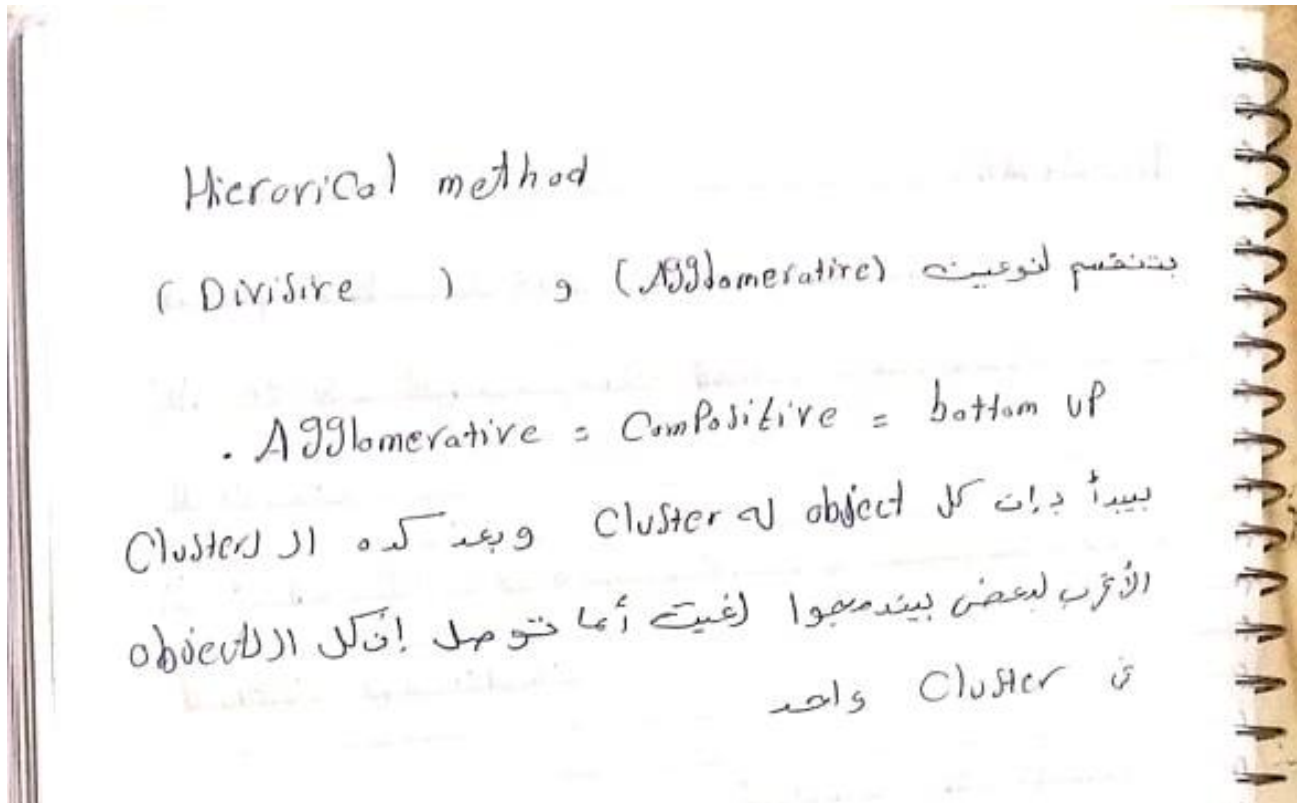 Hierarical method
بتنقسم لنوعين (Agglomerative) و (Divisive)
Agglomerative = Compositive = bottom up.
بيبدأ بإن كل object له Cluster وبعد كده ال Clusters
الأقرب لبعض بيندمجوا لغيت أما نوصل إن كل ال objects
في Cluster واحد